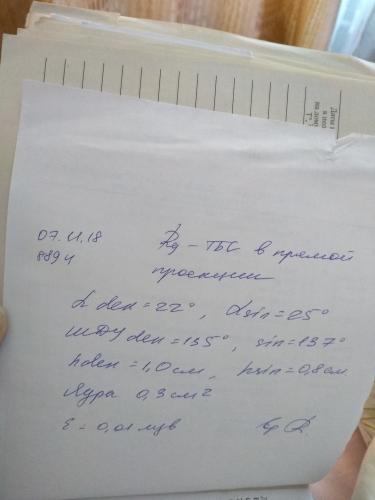 07.11.18 Rg - ТБС в прямой
8894 проекции
α dex = 22°, α sin = 25°
ШДУ dex = 135°, sin = 137°
h dex = 1,0 см, h sin = 0,8 см
Ядра 0,3 см²
E = 0,01 мзв